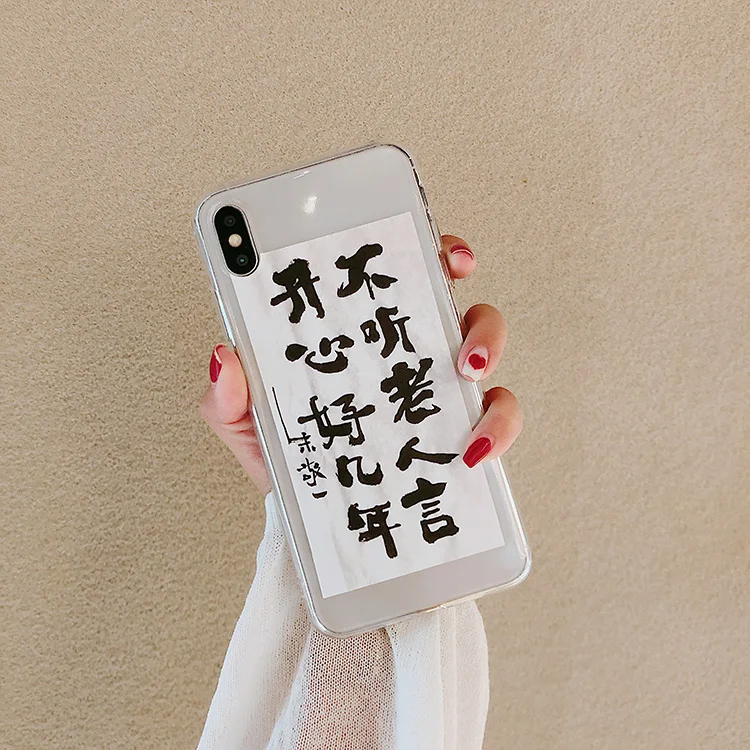 不听老人言
开心好几年